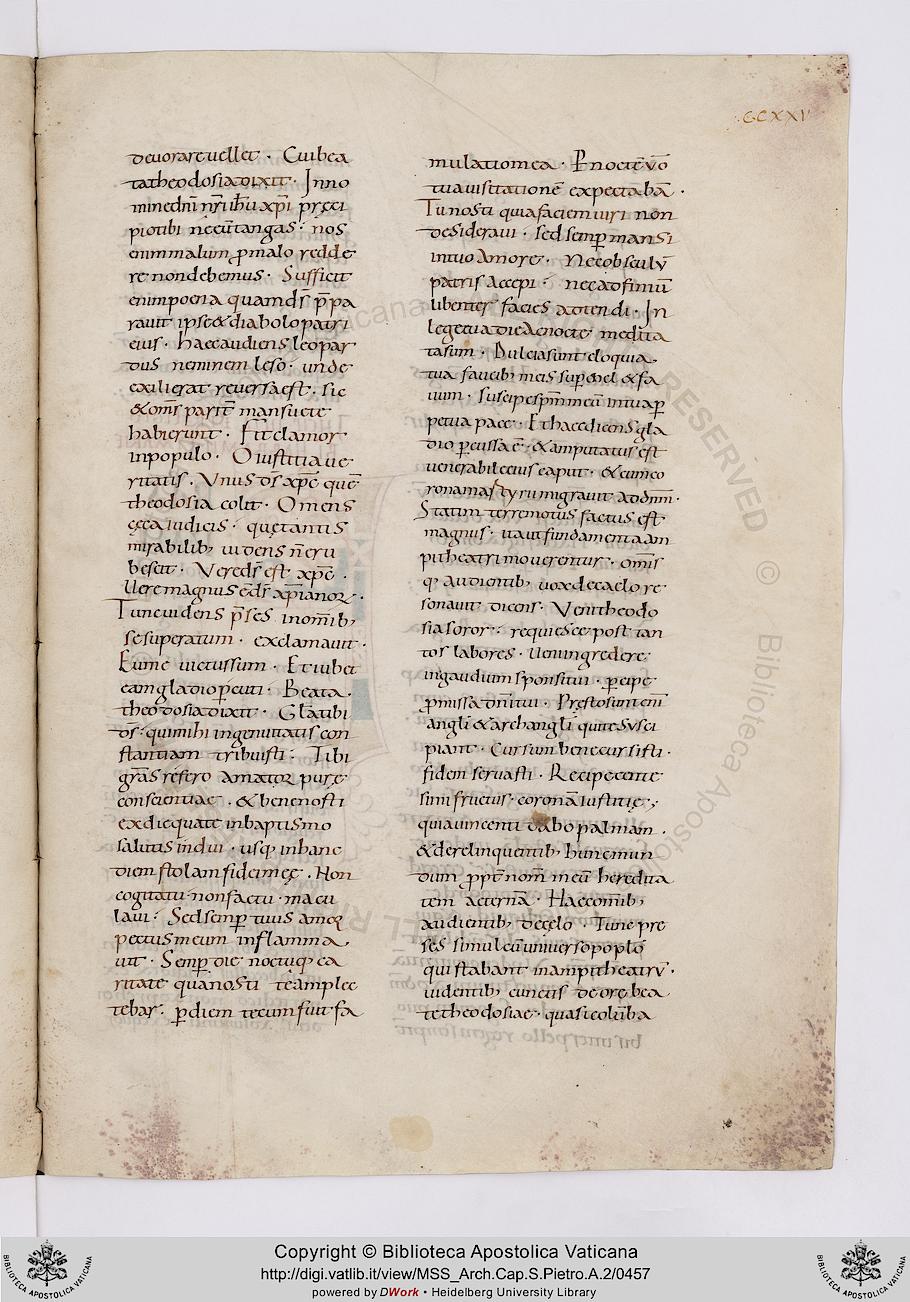 CCXXV
deuorare uellet · Cui bea
ta theodosia dixit · In no
mine dn̄i nr̄i ih̄u xp̄i pręci
pio tibi ne eū tangas · nos
enim malum ꝓ malo redde
re non debemus · Sufficit
enim poena quam dr̄ p̄pa
rauit ipse & diabolo patri
eius · haec audiens leopar
dus neminem leso · unde
exilierat reuersa est · sic
& om̄s pariť mansuete
habierunt · Fit clamor
in populo · O iustitia ue
ritatis · Unus d̄s xp̄e quē
theodosia colit · O mens
cęca iudicis · quę tantis
mirabilib; uidens ñ eru
bescit · Vere d̄s est xp̄e ·
Uere magnus ē d̄s xp̄ianoꝝ ·
Tunc uidens p̄ses in om̄ib;
se superatum · exclamauit ·
Eume uictus sum · Et iubet
eam gladio ꝑcuti · Beata
theodosia dixit · Gl̄a tibi
d̄s · qui mihi ingenuitatis con
stantiam tribuisti · Tibi
grās refero amatoꝝ purę
conscientiae · & bene nosti
ex die qua te in baptismo
salutis indui · usq; in hanc
diem stolam fidei meę · Non
cogitatu non factu · macu
laui · Sed semꝑ tuus amoꝝ
pectus meum inflamma
uit · Semꝑ die noctuq; ca
ritate qua nosti te amplec
tebar · ꝑ diem tecum fuit fa
mulatio mea · P̄ noctē uō
tua uisitationē expectabā ·
Tu nosti quia faciem uiri non
desideraui · sed semꝑ mansi
in tuo amore · Nec obsculū
patris accepi · nec ad fimū
libenter facies adtendi · In
lege tua die ac nocte medita
ta sum · Dulcia sunt eloquia
tua faucib; meis suꝑ mel & fa
uum · suscipe sp̄m meū in tua ꝑ
petua pace · Et haec dicens gla
dio ꝑcussa ē · & amputatus est
uenerabile eius caput · & cum co
rona martyru migrauit ad dn̄m ·
Statim terremotus factus est
magnus · ita ut fundamenta am
pitheatri mouerentur · om̄is
q; audientib; uox de caelo re
sonauit dicens · Veni theodo
sia soror · requiesce post tan
tos labores · Ueni ingredere
in gaudium sponsi tui · ꝑcipe
ꝓmissa dn̄i tui · Pręsto sunt enī
angli & archangli qui te susci
piant · Cursum bene cursisti ·
fidem seruasti · Recipe certe
simi fructus · coronā iustitię ;
quia uincenti dabo palmam ·
& derelinquentib; hunc mun
dum ꝓpt̄ nom̄ meū heredita
tem aeternā · Haec om̄ib;
audientib; de cęlo · Tunc pre
ses simul cū uniuerso poplō
qui stabant in ampitheatrū ·
uidentib; cunctis de ore bea
te theodosiae · quasi colūba
Copyright © Biblioteca Apostolica Vaticana
http://digi.vatlib.it/view/MSS_Arch.Cap.S.Pietro.A.2/0457
powered by DWork • Heidelberg University Library